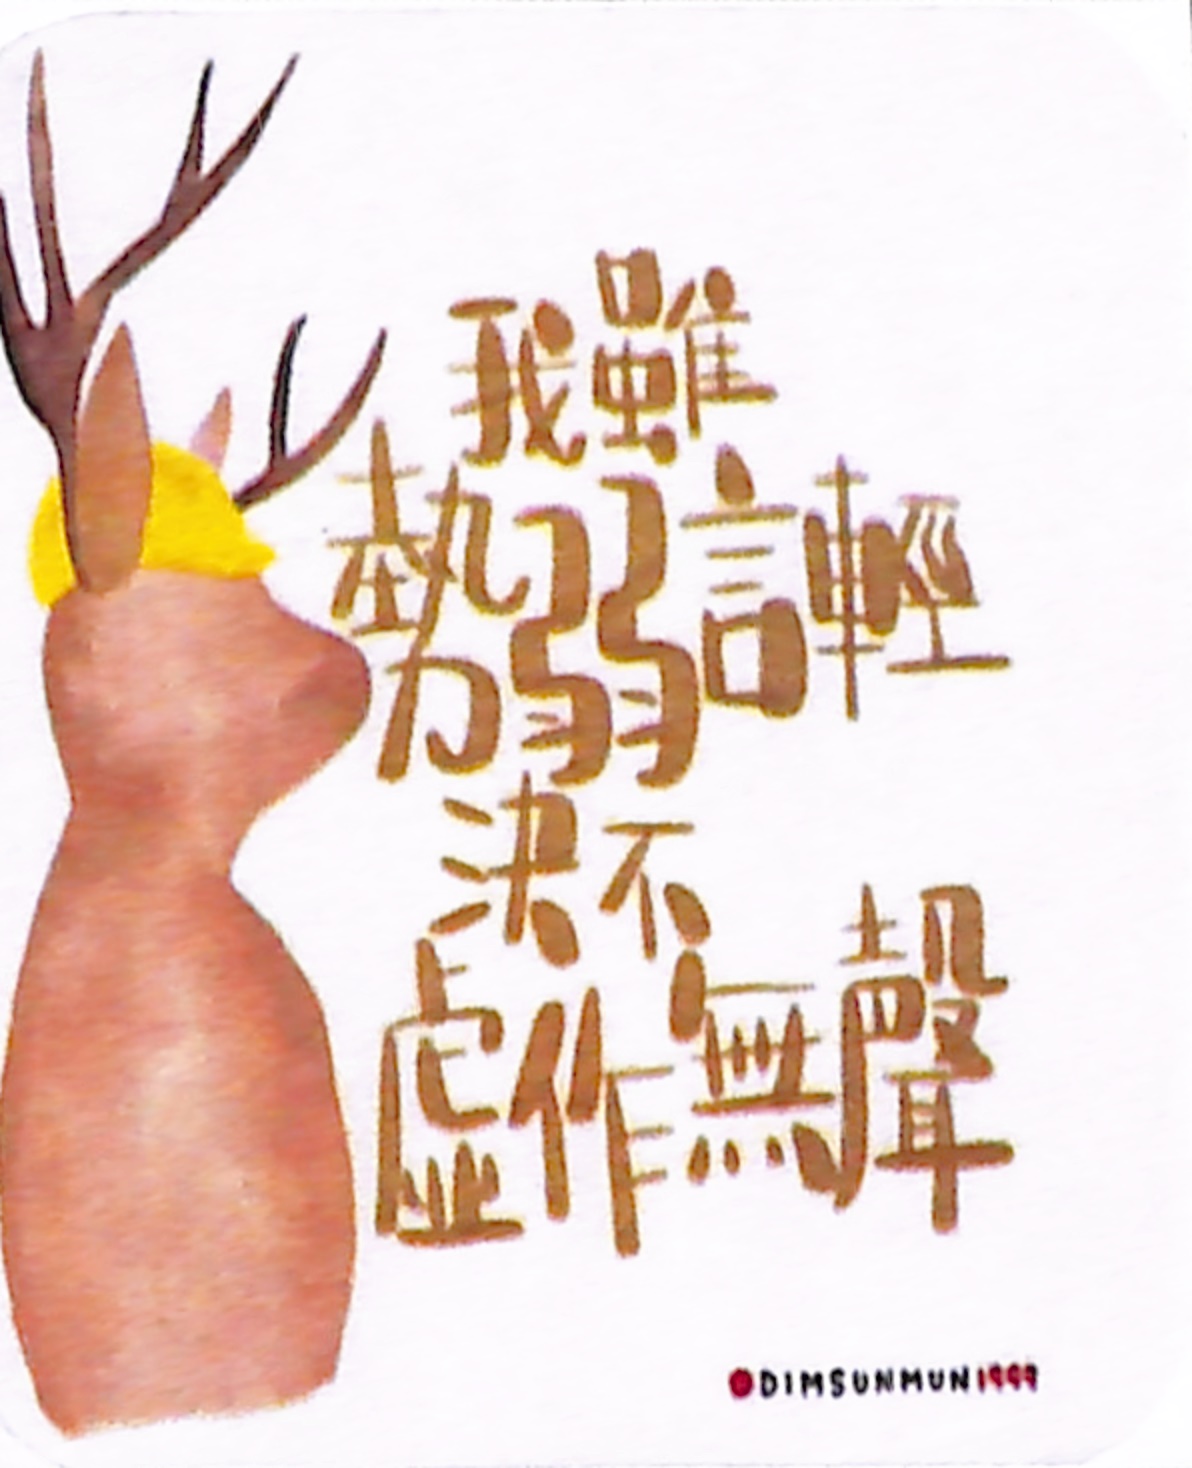 我雖
勢弱言輕
決不
虛作無聲
DIMSUNMUN1999